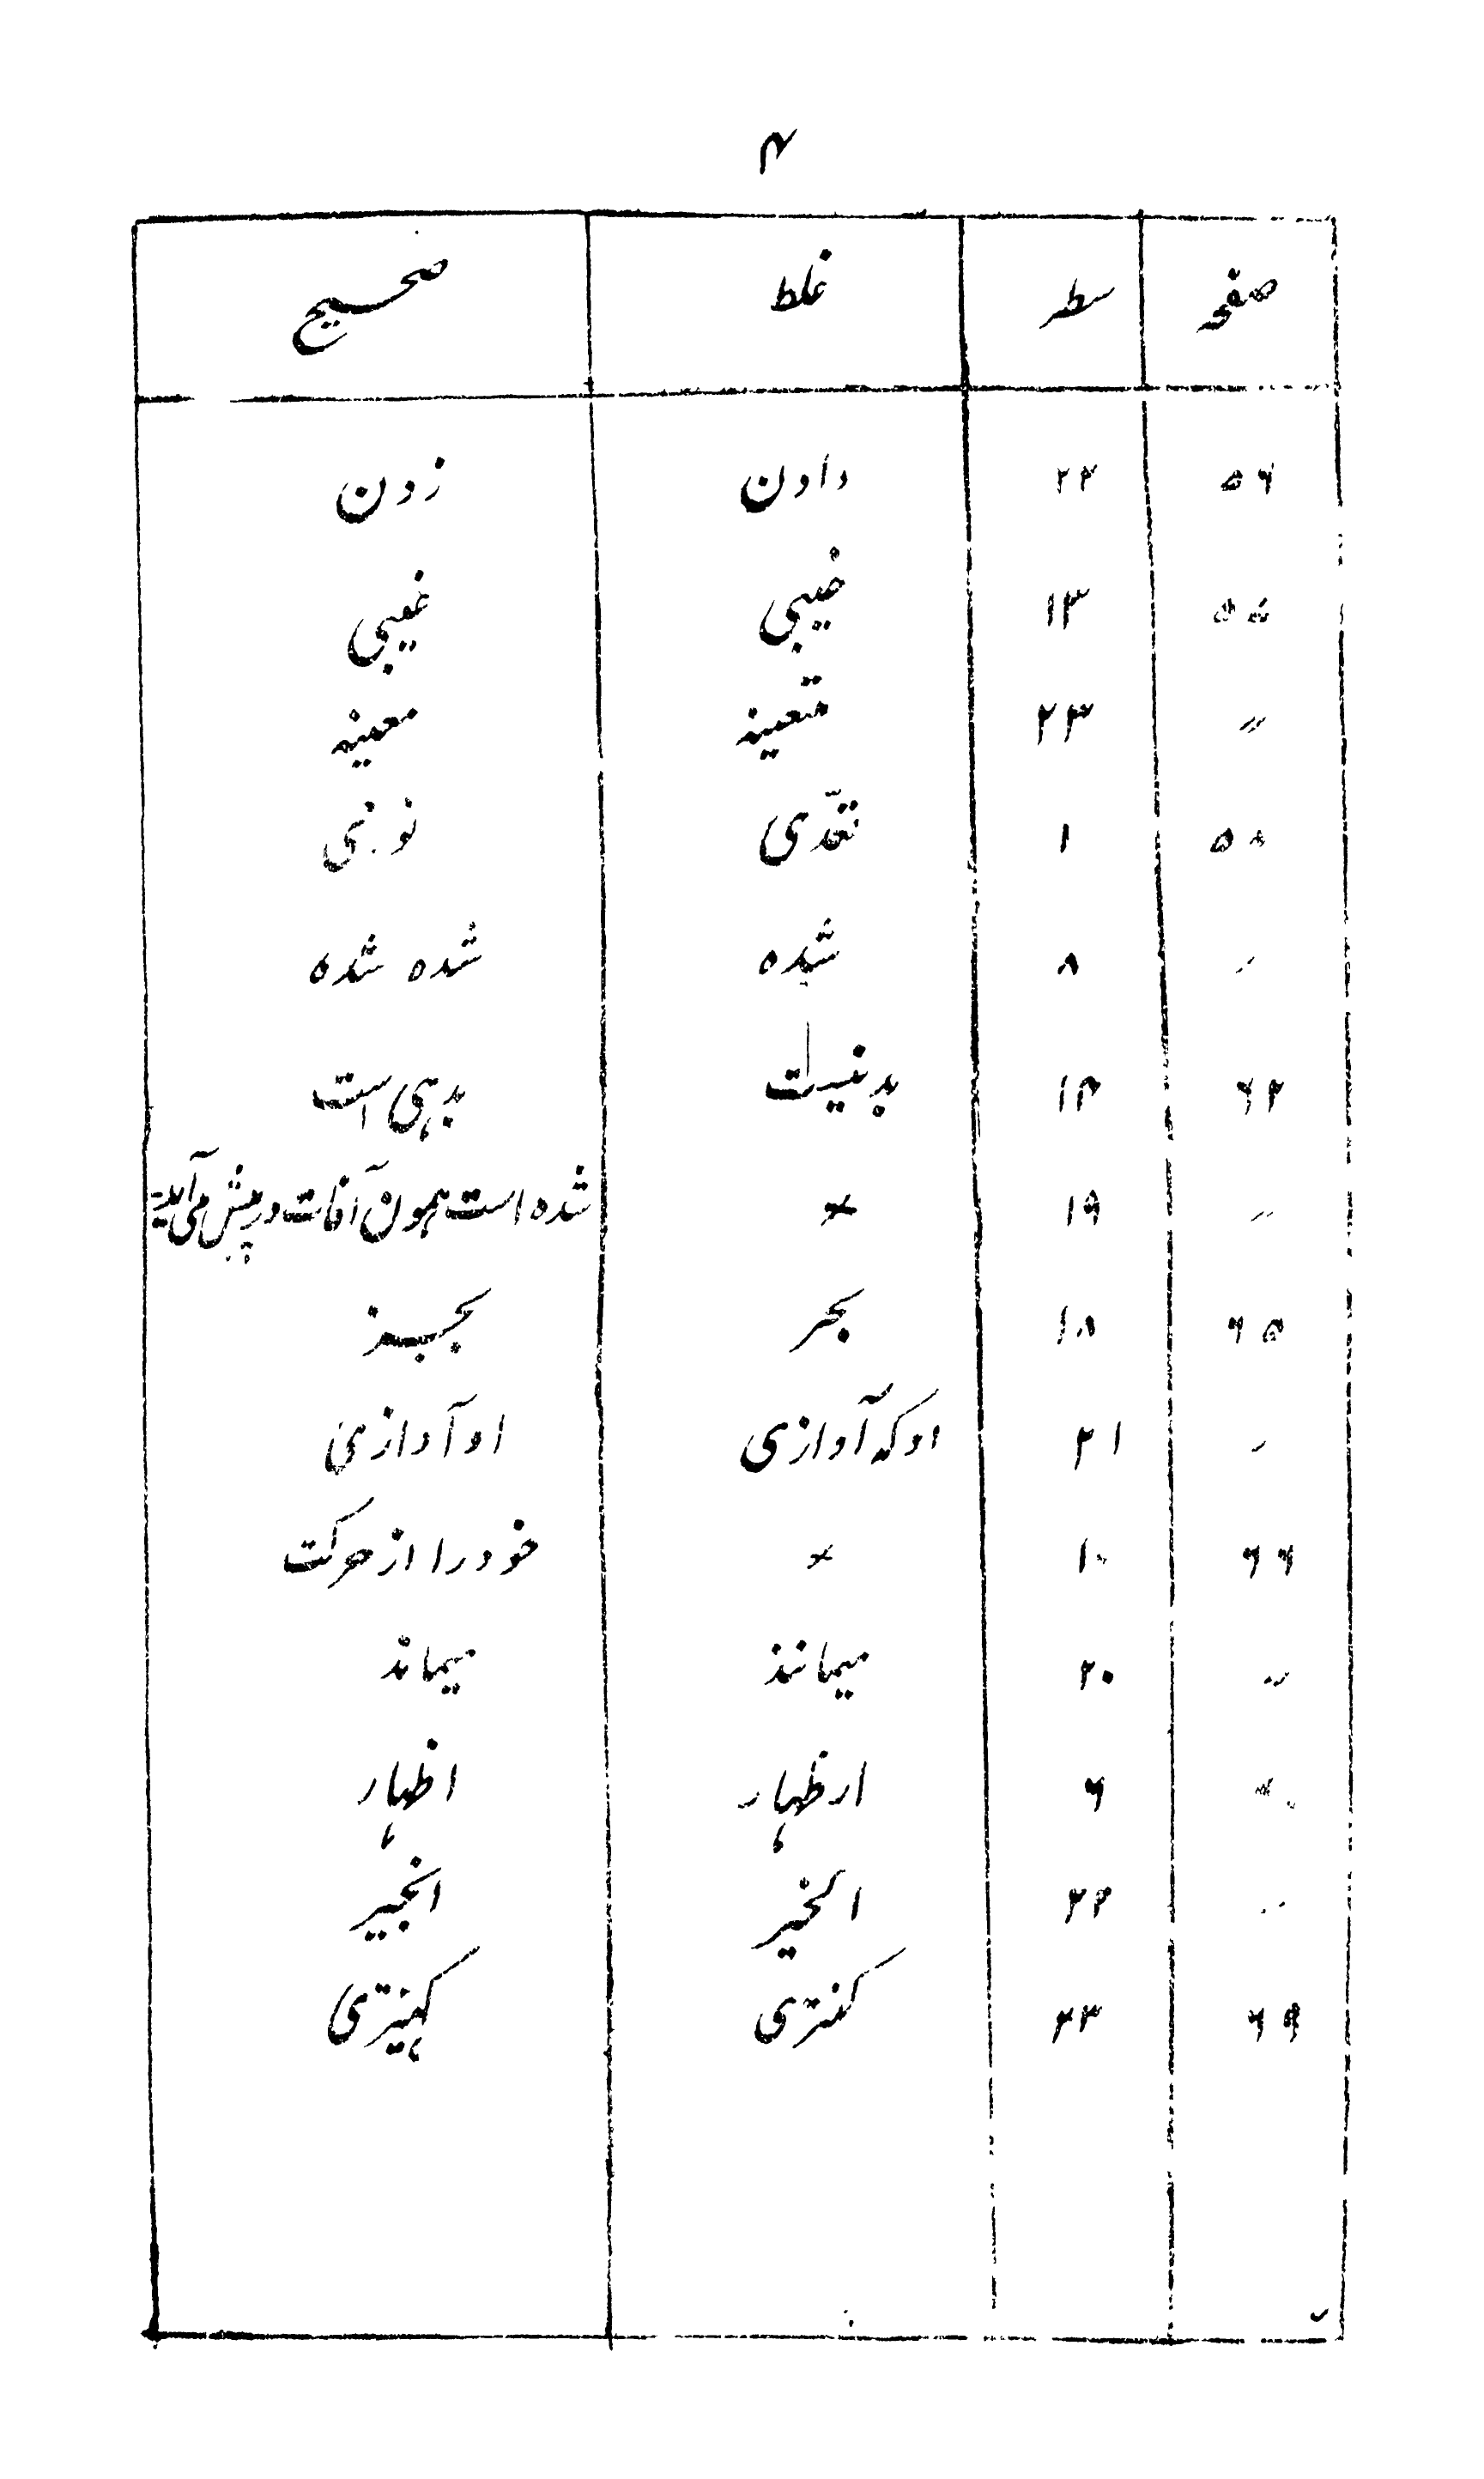 ۴
صفحہ سطر غلط صحیح
۵۶ ۲۲ دادن زدن
۵۵ ۱۳ ضیبی غیبی
〃 ۲۳ متعینہ معینہ
۵۸ ۱ تعدّی
〃 ۸ شدہ شدہ شدہ
۶۲ ۱۴ بدنیست بدیہی است
〃 ۱۹ × شدہ است ہمون آفات درپیش می آید
۶۵ ۱۸ بحر بجبذ
〃 ۲۱ او کہ آوازی او آوازی
۶۶ ۱۰ × خود را از حرکت
〃 ۲۰ میمانند میماند
۶ ارظہار اظہار
〃 ۲۲ الخیر انجیر
۶۹ ۲۳ کمتری کہتری